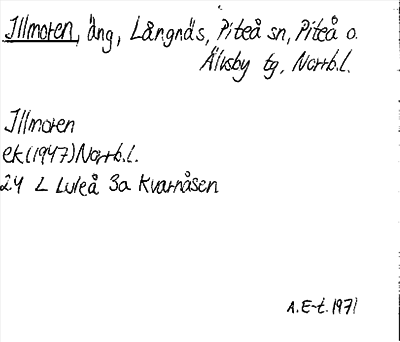 Illmoren, äng, Långnäs, Piteå sn, Piteå o.
Älvsby tg, Norrb.l.
Illmoren
ek(1947)Norrb.l.
24 L Luleå 3a Kvarnåsen
A.E-t. 1971